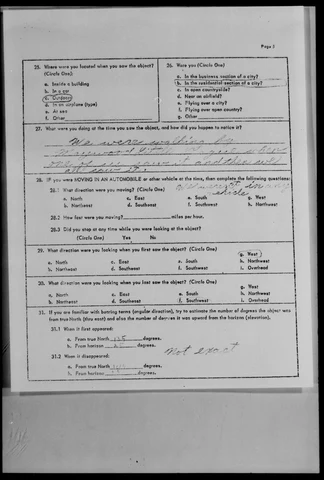 Page 2
25. Where were you located when you saw the object?
(Circle One):
a. Inside a building
b. In a car
c. Outdoors
d. In an airplane (type)
e. At sea
f. Other
26. Were you (Circle One)
a. In the business section of a city?
b. In the residential section of a city?
c. In open countryside?
d. Near an airfield?
e. Flying over a city?
f. Flying over open country?
g. Other
27. What were you doing at the time you saw the object, and how did you happen to notice it?
We were walking by
one of us saw it and then we
all saw it.
28. IF you were MOVING IN AN AUTOMOBILE or other vehicle at the time, then complete the following questions:
28.1 What direction were you moving? (Circle One)
a. North c. East e. South g. West
b. Northeast d. Southeast f. Southwest h. Northwest
in any
vehicle
28.2 How fast were you moving? miles per hour.
28.3 Did you stop at any time while you were looking at the object?
(Circle One) Yes No
29. What direction were you looking when you first saw the object? (Circle One)
a. North c. East e. South g. West
b. Northeast d. Southeast f. Southwest h. Northwest
i. Overhead
30. What direction were you looking when you last saw the object? (Circle One)
a. North c. East e. South g. West
b. Northeast d. Southeast f. Southwest h. Northwest
i. Overhead
31. If you are familiar with bearing terms (angular direction), try to estimate the number of degrees the object was
from true North (thru east) and also the number of degrees it was upward from the horizon (elevation).
31.1 When it first appeared:
a. From true North degrees.
b. From horizon degrees.
31.2 When it disappeared:
a. From true North degrees.
b. From horizon degrees.
Not exact